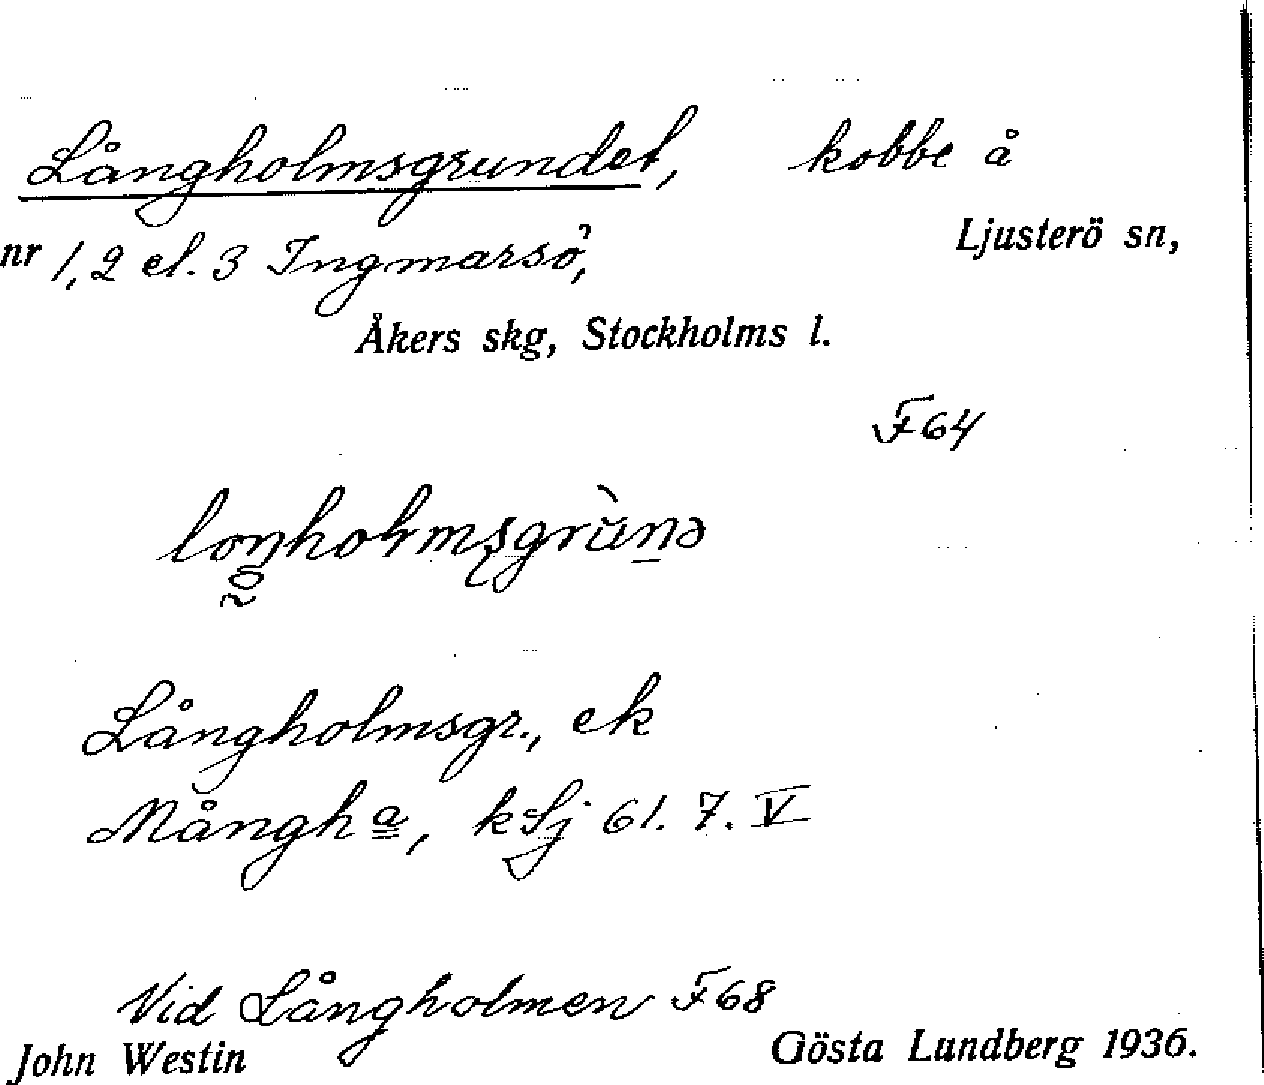 Långholmsgrundet, kobbe å
nr 1, 2 el. 3 Ingmarsö, Ljusterö sn,
Åkers skg, Stockholms l.
F64
Långholmsgr., ek
Mångha, kSj 61. 7. V
Vid Långholmen F68
John Westin Gösta Lundberg 1936.